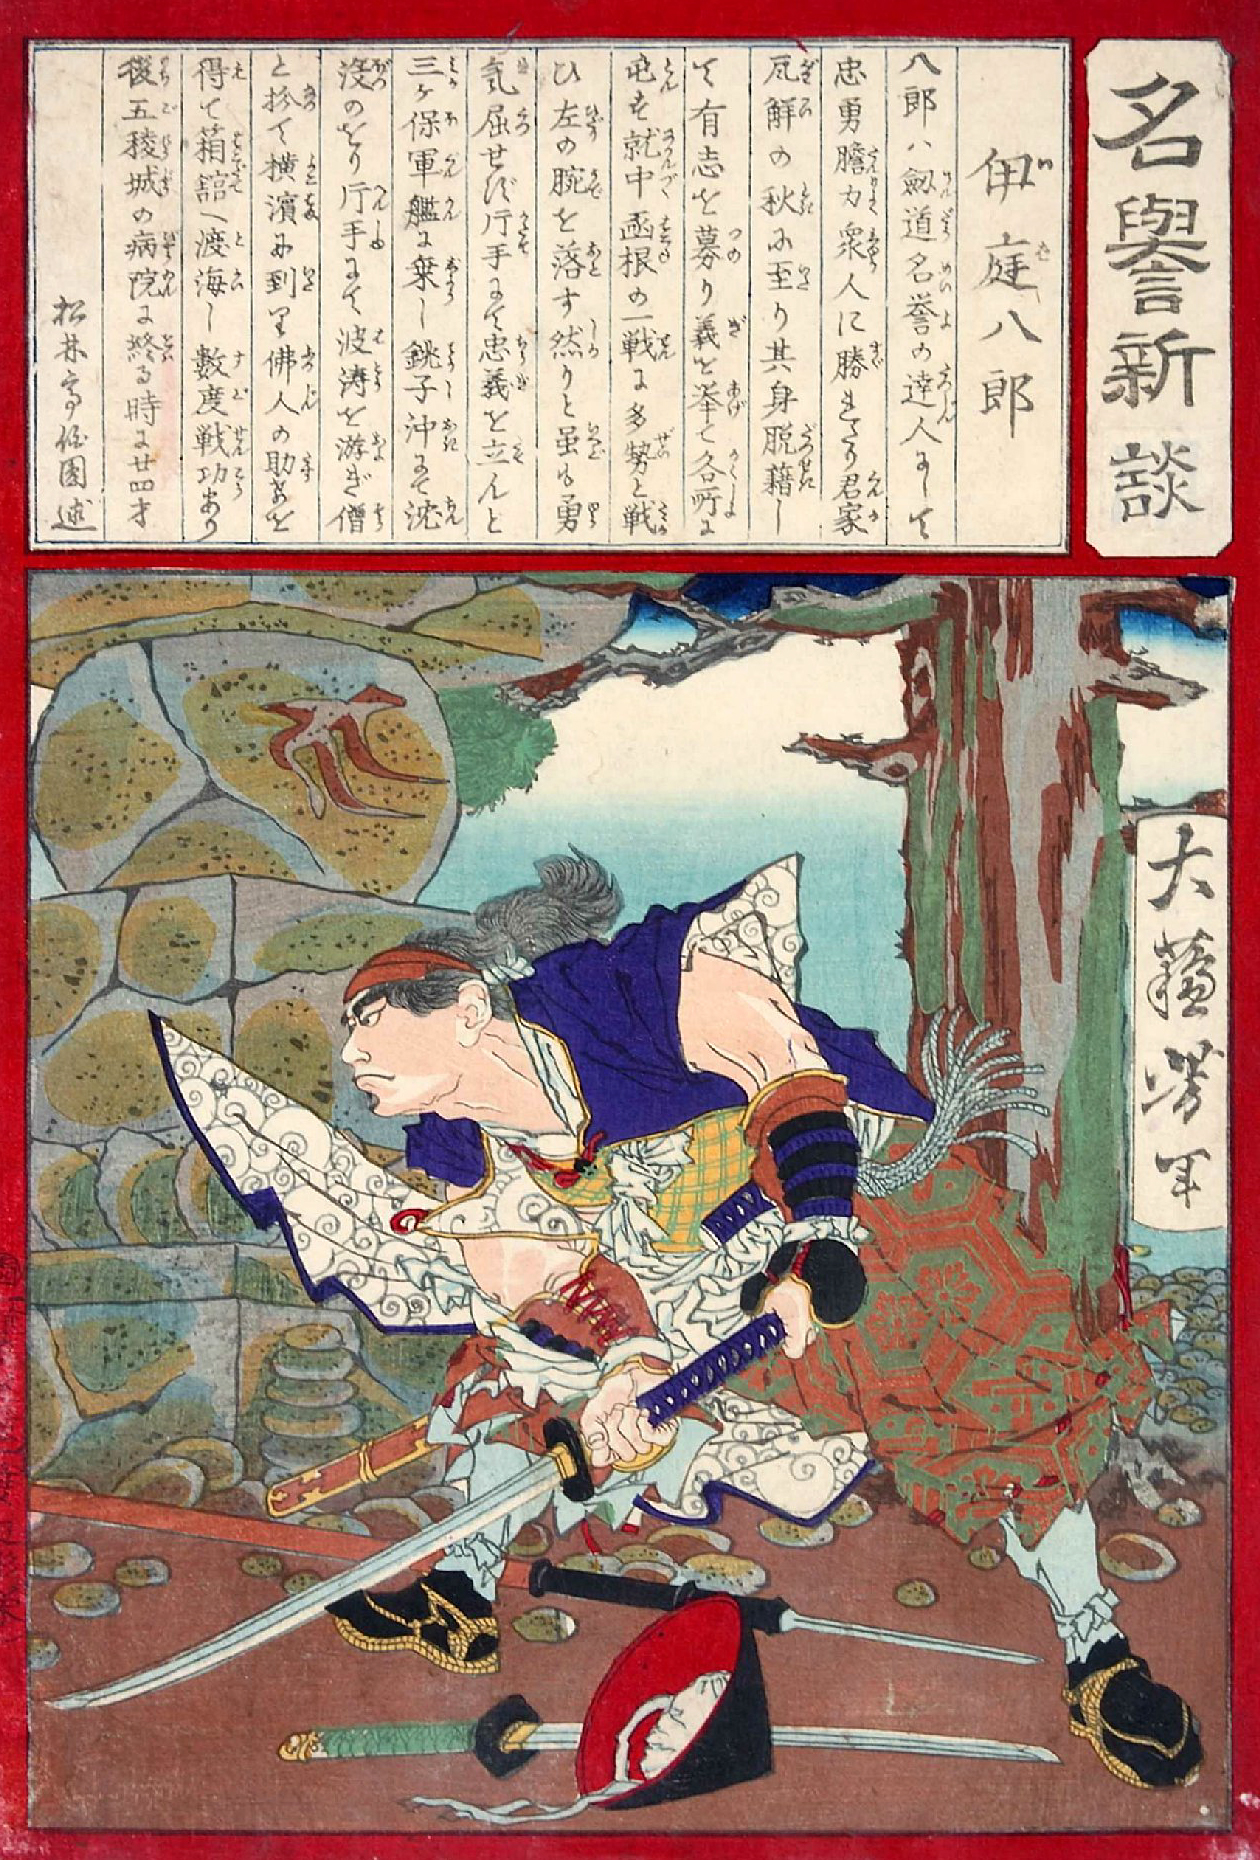 名譽新談
伊庭八郎
八郎ハ劔道名誉の達人にして
忠勇膽力衆人に勝れたり君家
瓦解の秋に至り其身脱籍し
て有志を募り義を挙て各所に
屯す就中函根の一戦に多勢と戦
ひ左の腕を落す然りと雖も勇
気屈せず片手にて忠義を立んと
三ケ保軍艦に乗し銚子沖にて沈
没のをり片手にて波涛を游ぎ
と 横濱に到り佛人の助力を
得て箱舘へ渡海し數度戦功あり
後五稜城の病院に終る時に廿四才
松林亭伯圓述
大蘓芳年